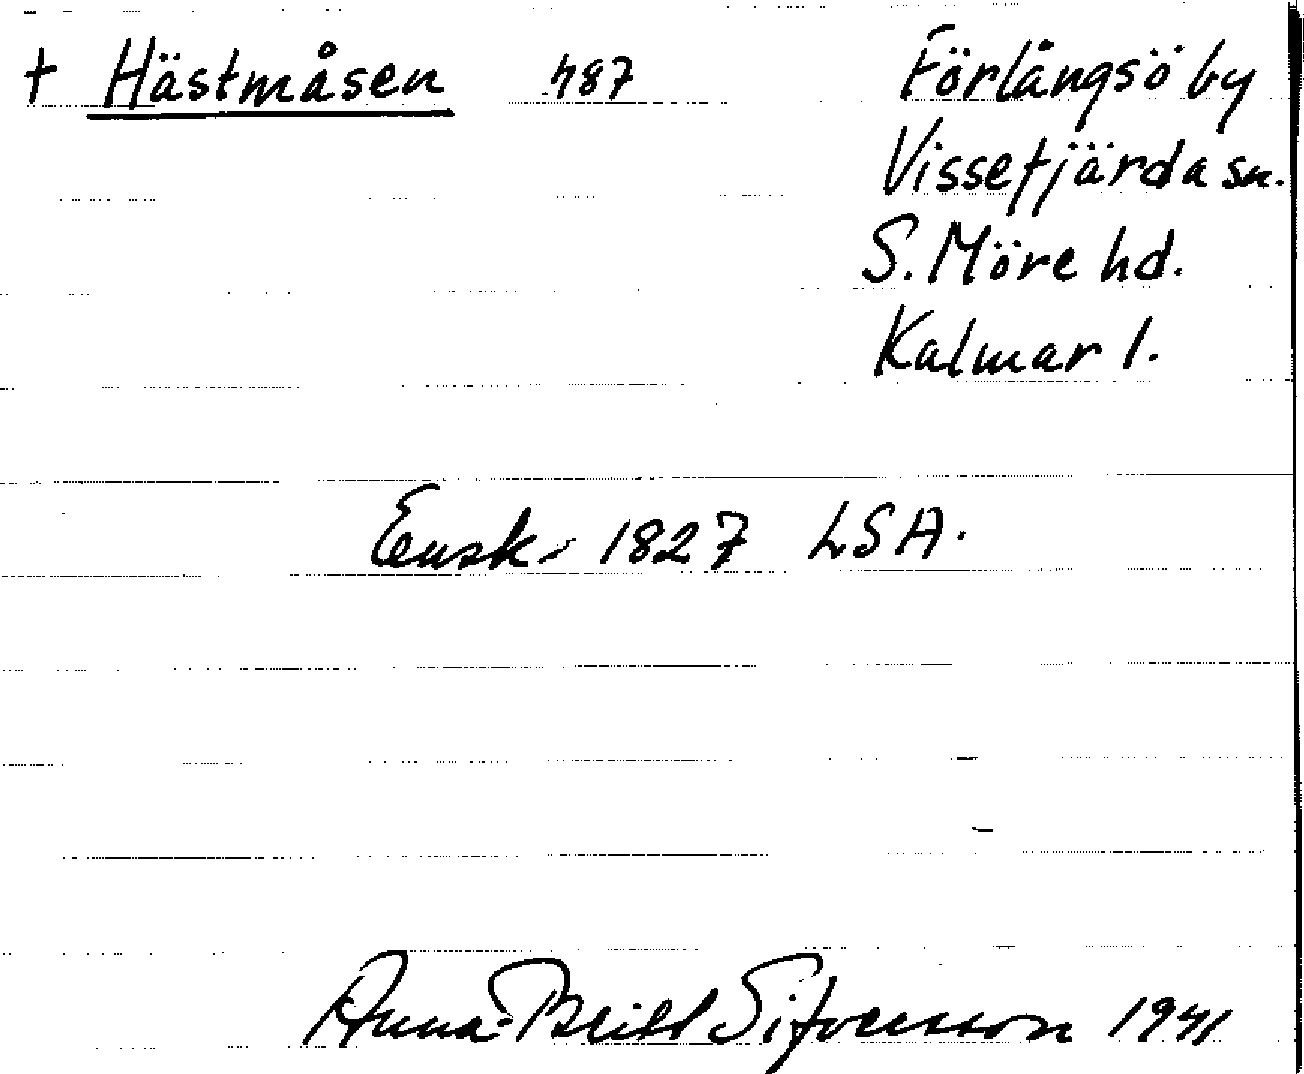 † Hästmåsen 487 Förlångsö by
Vissefjärda sn.
S. Möre hd.
Kalmar l.
Ensk. 1827 LSA.
Anna-Britt Sifvensson 1941